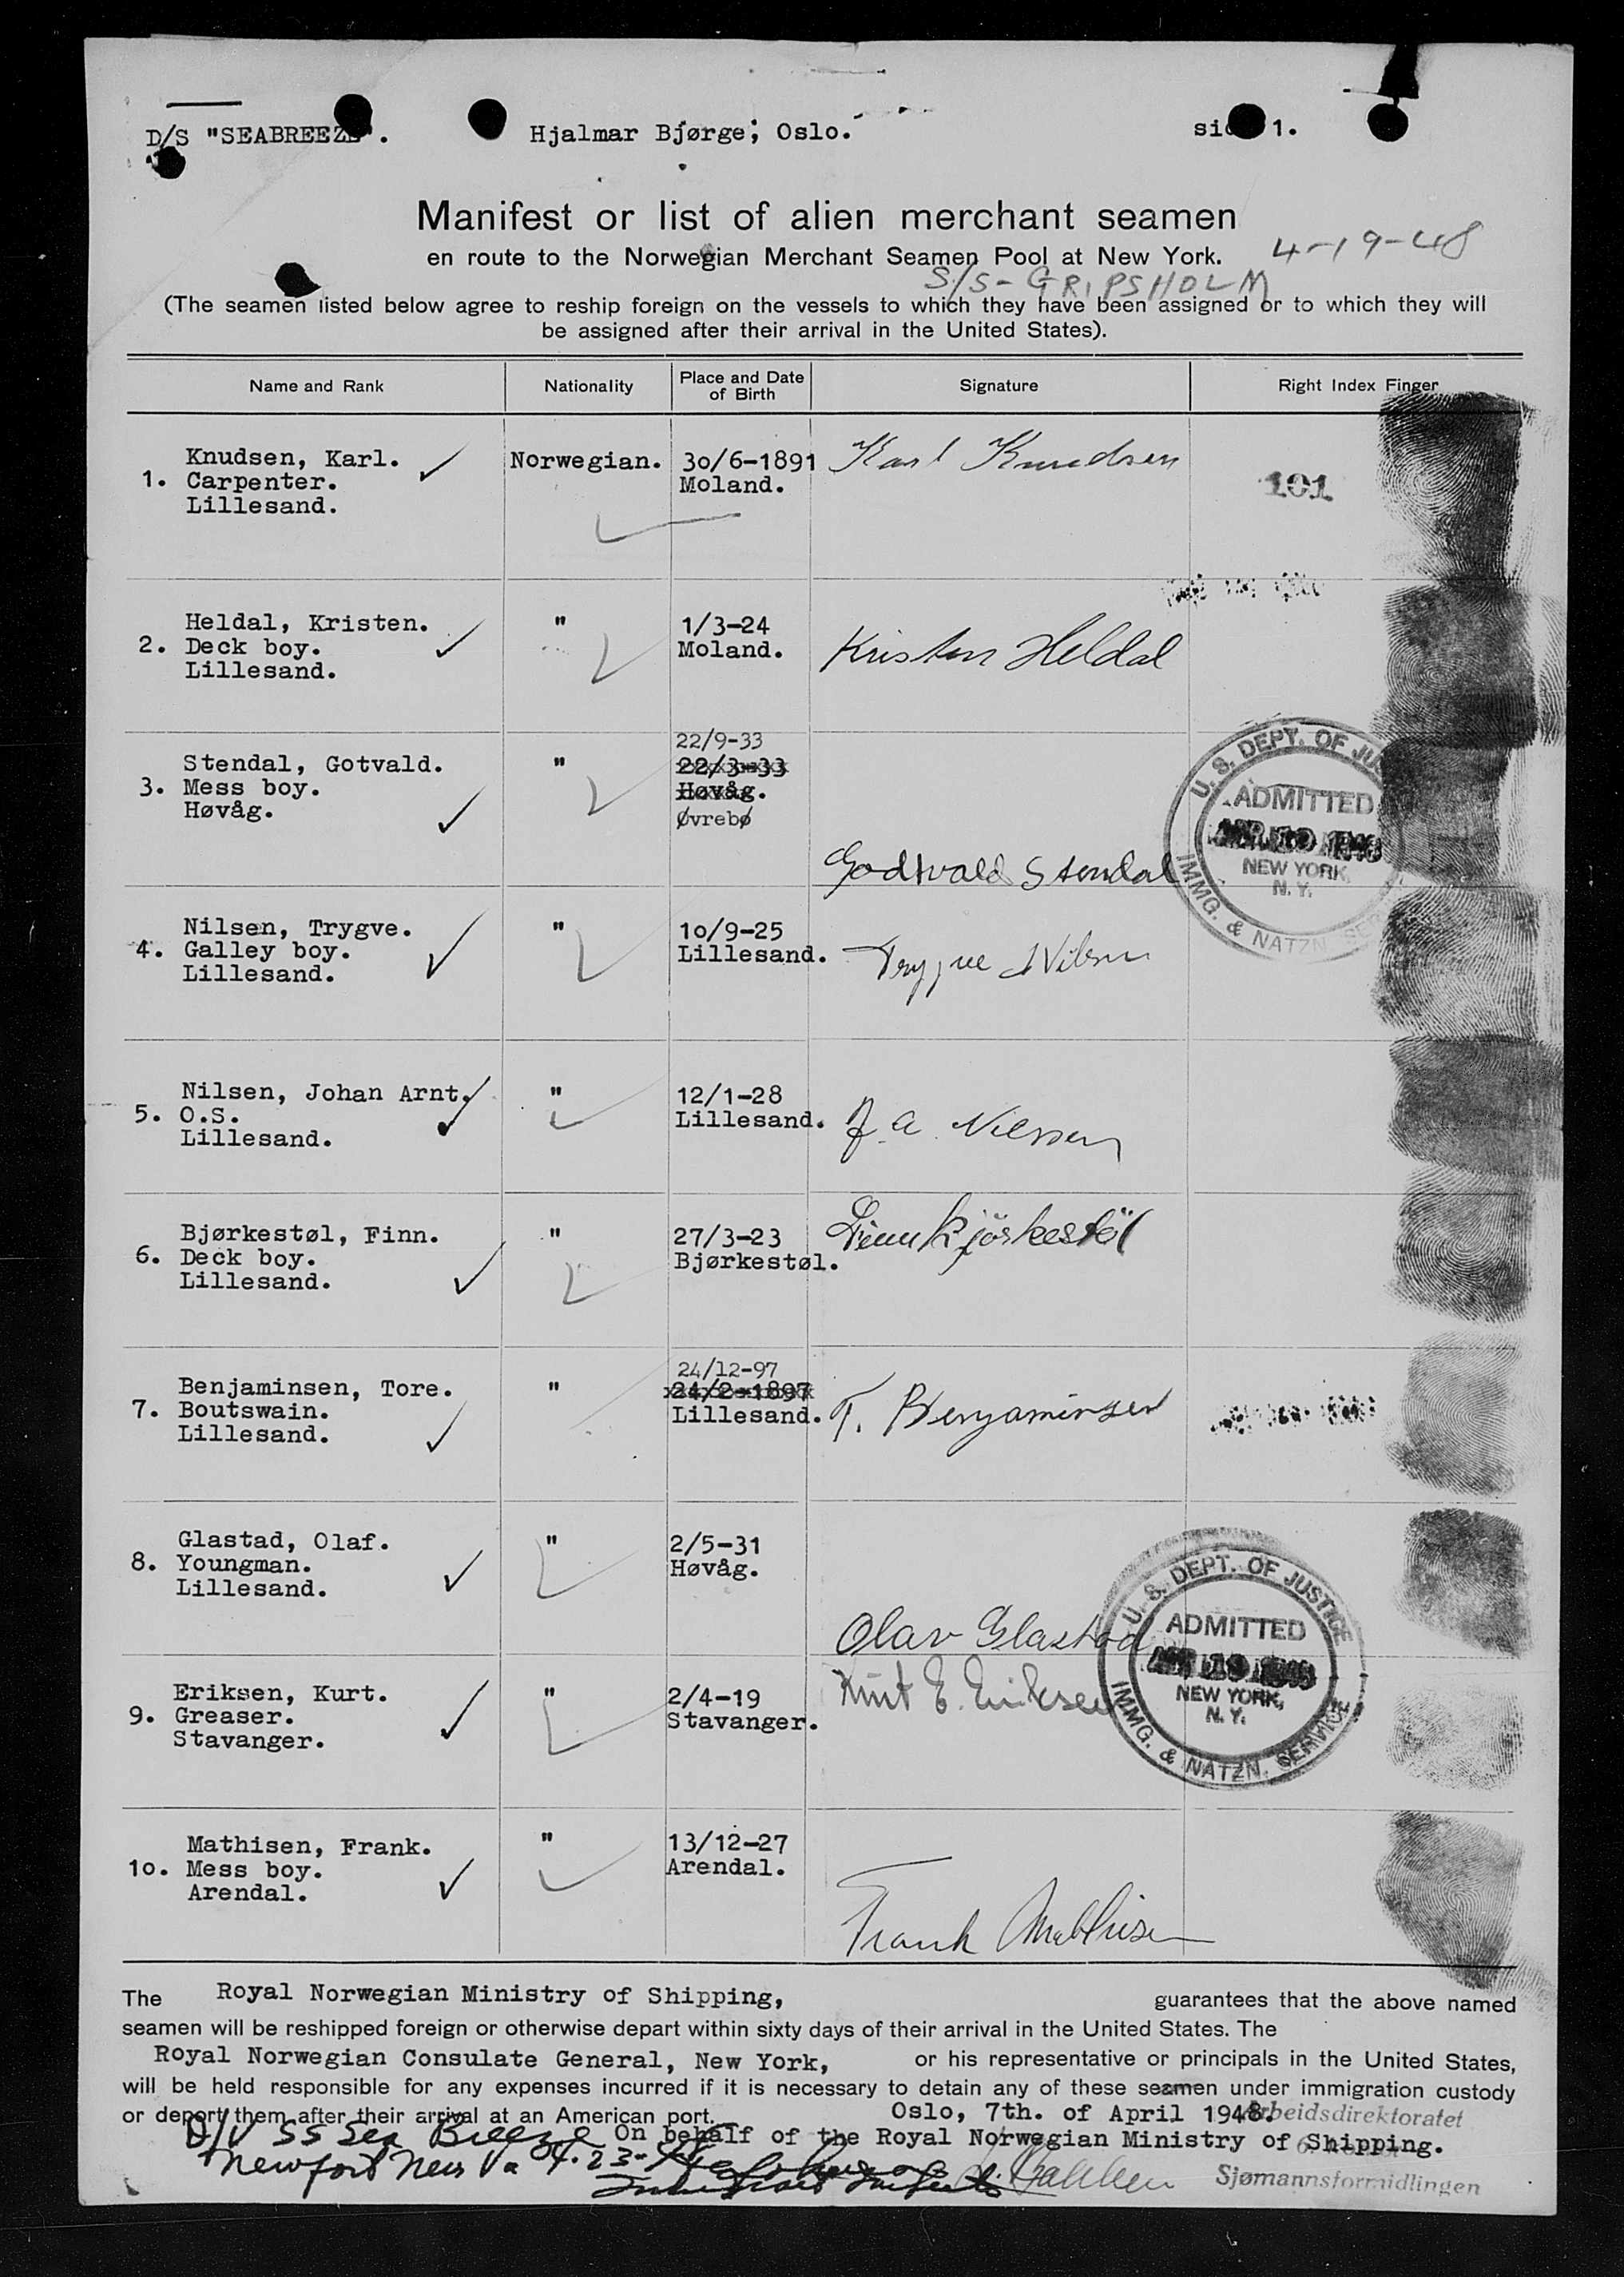 D/S "SEABREEZE". Hjalmar Bjørge, Oslo. side 1.
Manifest or list of alien merchant seamen
en route to the Norwegian Merchant Seamen Pool at New York. 4-19-48
S/S-GRIPSHOLM
(The seamen listed below agree to reship foreign on the vessels to which they have been assigned or to which they will
be assigned after their arrival in the United States).
Name and Rank Nationality Place and Date of Birth Signature Right Index Finger
Knudsen, Karl. Norwegian. 30/6-1891 Karl Knudsen
1. Carpenter. Moland. 101
Lillesand.
Heldal, Kristen. " 1/3-24
2. Deck boy. Moland. Kristen Heldal
Lillesand.
22/9-33
Stendal, Gotvald. " 22/3-33
3. Mess boy. Høvåg.
Høvåg. Øvrebø
Godtvald Stendal
U. S. DEPT. OF JU
ADMITTED
NEW YORK,
N. Y.
IMMG. & NATZN. SE
Nilsen, Trygve. " 10/9-25
4. Galley boy. Lillesand. Trygve Nilsen
Lillesand.
Nilsen, Johan Arnt. " 12/1-28
5. O.S. Lillesand. J. A. Nilssen
Lillesand.
Bjørkestøl, Finn. " 27/3-23 Finn Bjørkestöl
6. Deck boy. Bjørkestøl.
Lillesand.
24/12-97
Benjaminsen, Tore. " 24/2-1897
7. Boutswain. Lillesand. T. Benjaminsen
Lillesand.
Glastad, Olaf. " 2/5-31
8. Youngman. Høvåg.
Lillesand.
Olav Glastad
U. S. DEPT. OF JUSTICE
ADMITTED
NEW YORK,
N. Y.
IMMG. & NATZN. SERVICE
Eriksen, Kurt. " 2/4-19 Kurt E. Eriksen
9. Greaser. Stavanger.
Stavanger.
Mathisen, Frank. " 13/12-27
10. Mess boy. Arendal.
Arendal.
Frank Mathisen
The Royal Norwegian Ministry of Shipping, guarantees that the above named
seamen will be reshipped foreign or otherwise depart within sixty days of their arrival in the United States. The
Royal Norwegian Consulate General, New York, or his representative or principals in the United States,
will be held responsible for any expenses incurred if it is necessary to detain any of these seamen under immigration custody
or deport them after their arrival at an American port. Oslo, 7th. of April 1948. Arbeidsdirektoratet
D/V SS Sea Breeze On behalf of the Royal Norwegian Ministry of Shipping.
Newport News Va 4-23-
Sjømannsformidlingen